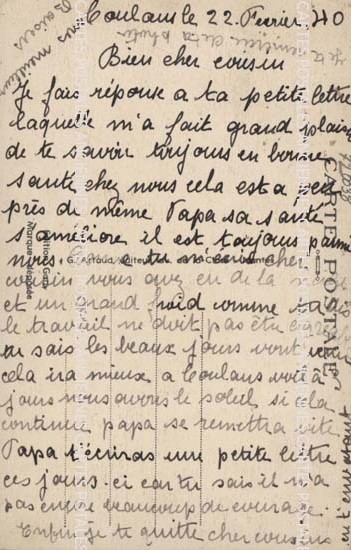 Coulans le 22 Février 40
Bien cher cousin
Je fais réponse a ta petite lettre
laquelle m'a fait grand plaisir
de te savoir toujours en bonne
santé chez nous cela est a peu
près de même Papa sa santé
s'améliore il est toujours parmi
nous
cousin vous avez eu de la
et un grand froid comme
le travail ne doit pas être
tu sais les beaux jours vont
cela ira mieux a Coulans voilà
jours nous avons le soleil si cela
continue papa se remettra vite
Papa t'écriras une petite lettre
ces jours-ci car tu sais il n'a
pas encore beaucoup de courage.
Enfin je te quitte cher cousin
en t'embrassant
Baisers
meilleurs
CARTE POSTALE